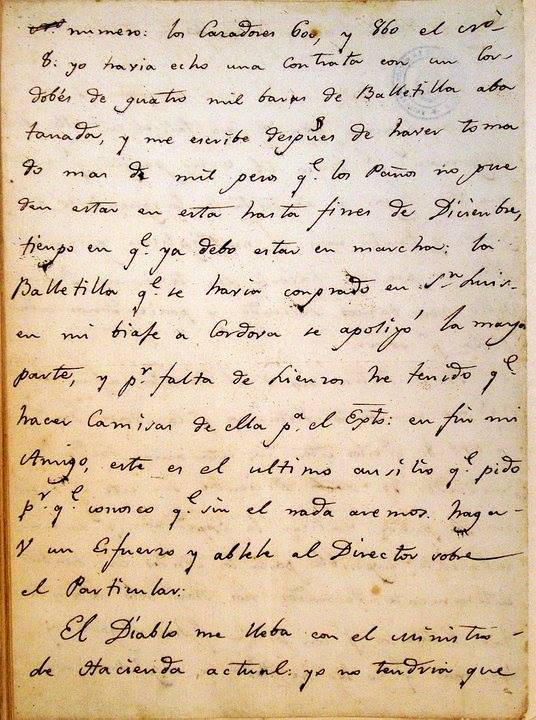 numero: los Cazadores 600, y 860 el nº
8: yo havia echo una contrata con un Cor-
dobés de quatro mil baras de Balletilla aba
tanada, y me escribe despues de haver toma
do mas de mil pesos q.e los Panos no pue
den estar en esta hasta fines de Diciembre,
tiempo en q.e ya debo estar en marcha: la
Balletilla q.e se havia conprado en S.n Luis
en mi biaje a Cordova se apolilló la mayor
parte, y p.r falta de Lienzos he tenido q.e
hacer Camisas de ella p.a el Exto: en fin mi
Amigo, este es el ultimo ausilio q.e pido
p.r q.e conosco q.e sin el nada aremos. haga
V un Esfuerzo y ablele al Director sobre
el Particular:
El Diablo me lleba con el Ministro
de Hacienda actual: yo no tendria que